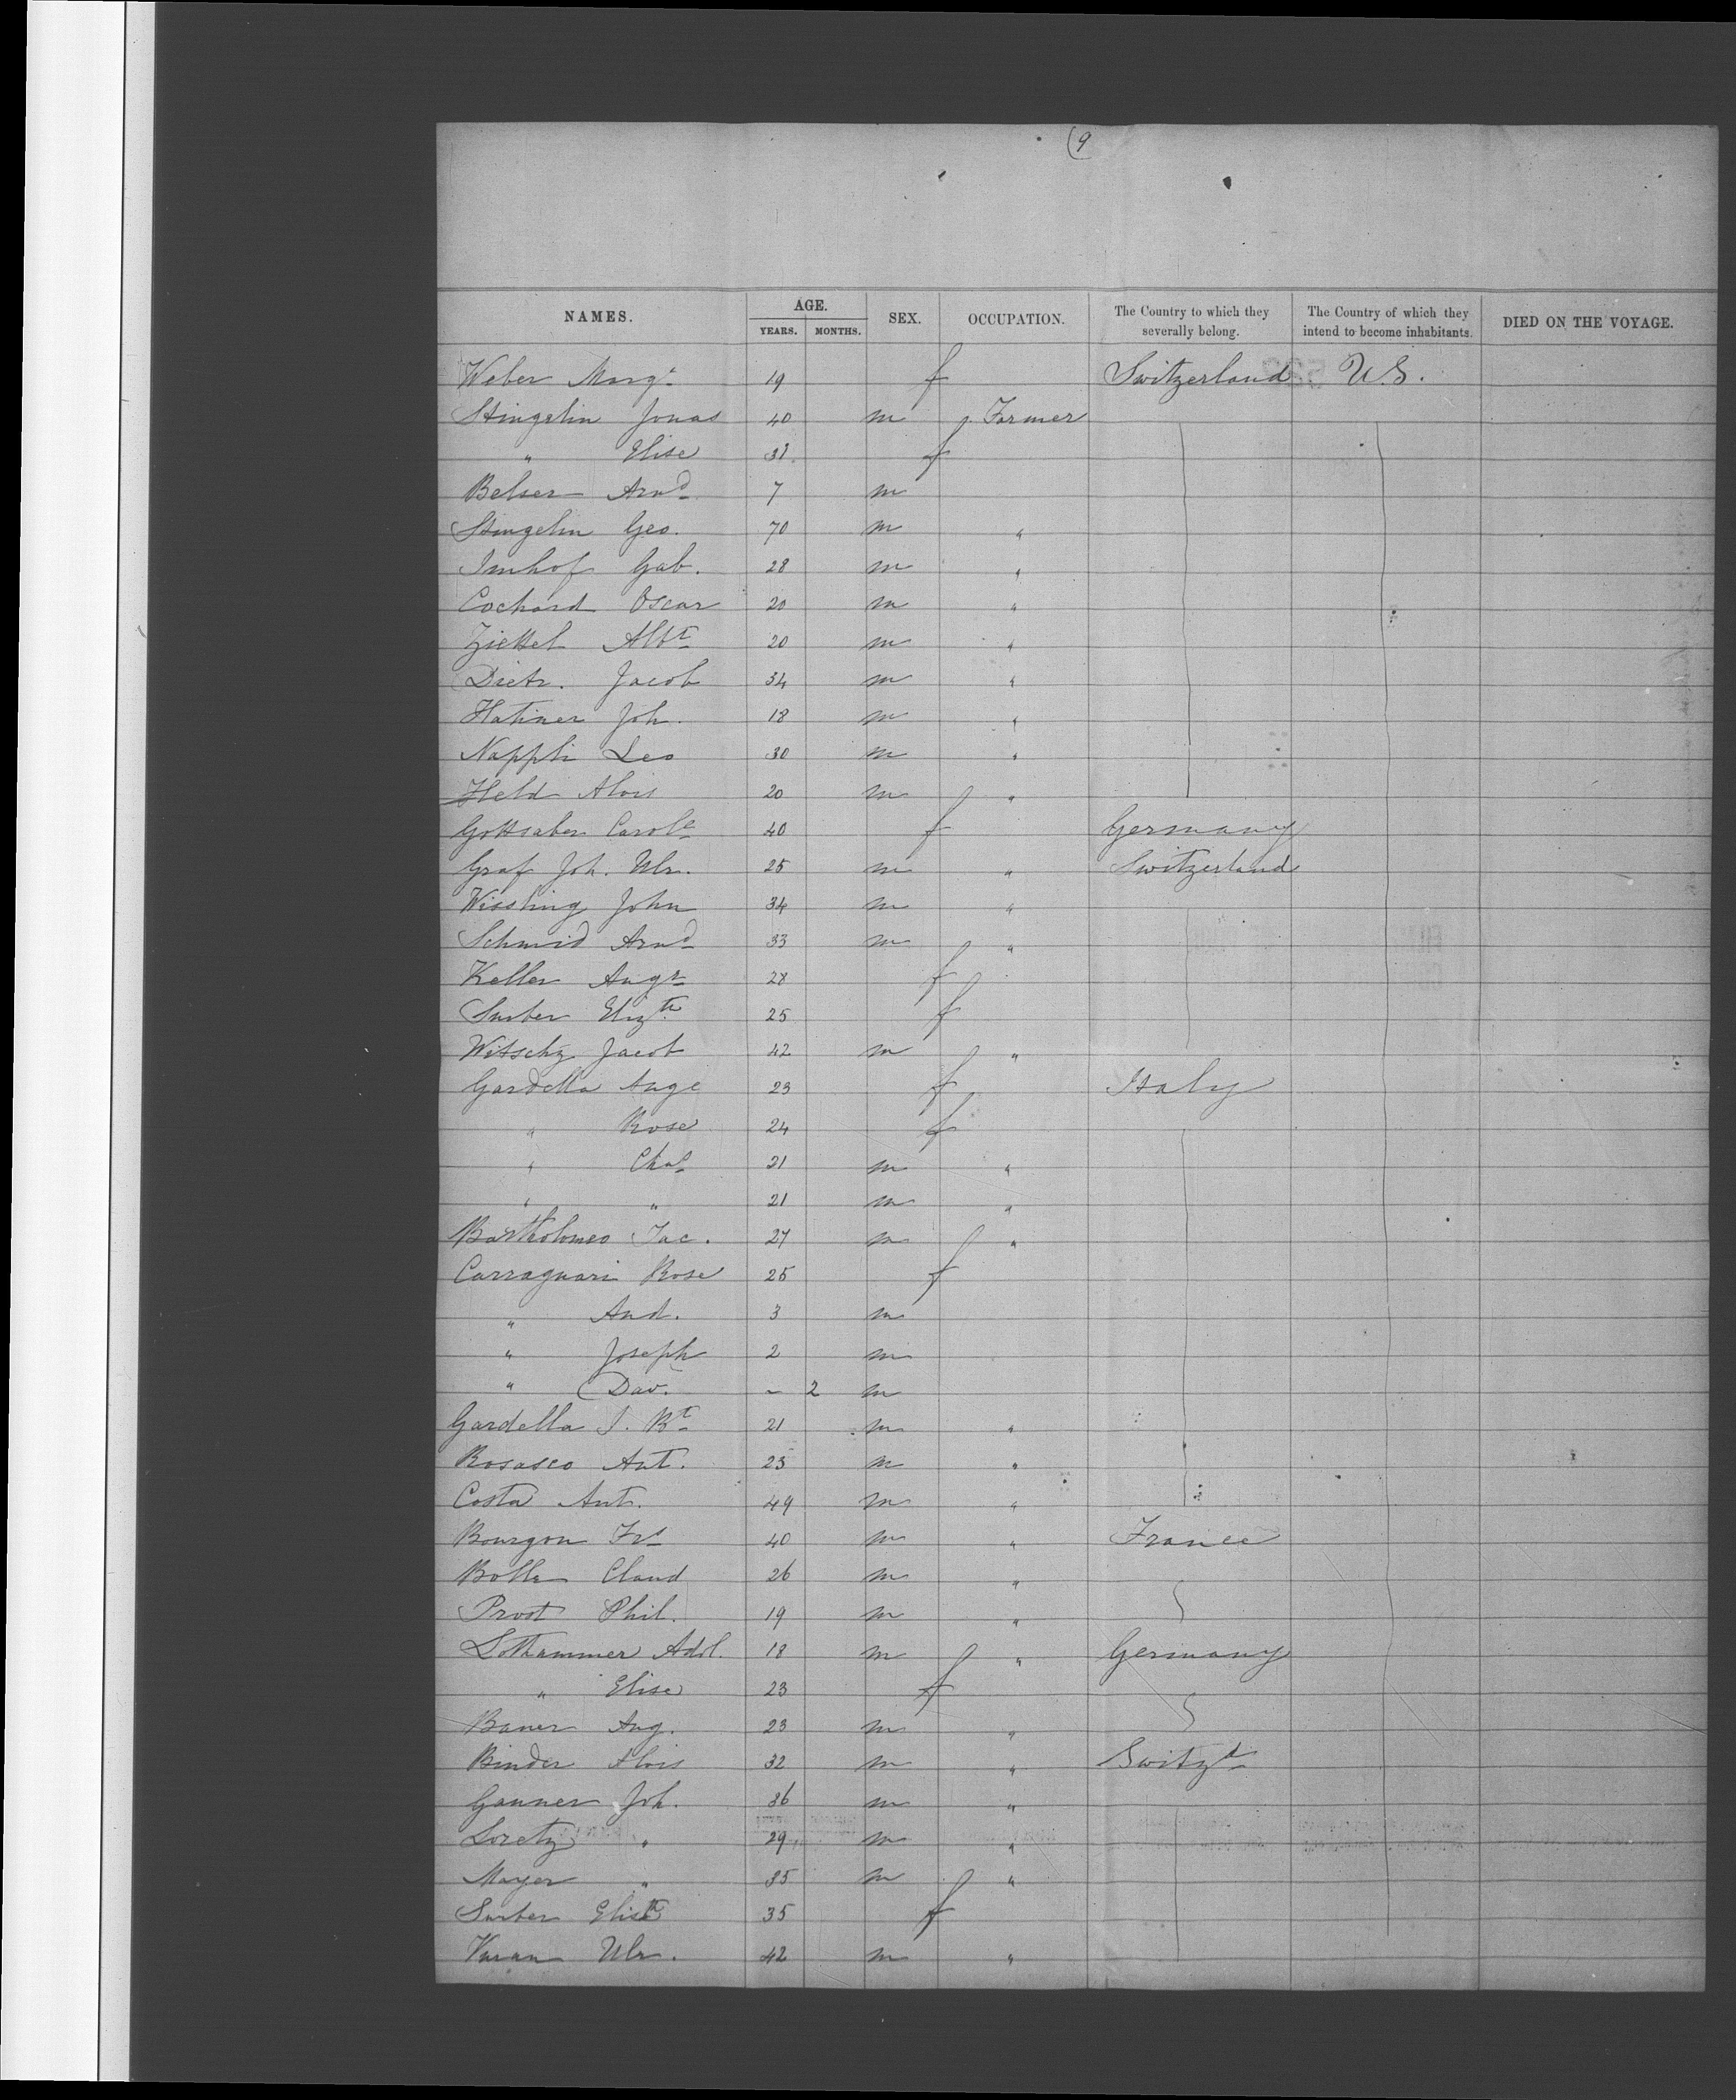 (9
NAMES. AGE. YEARS. MONTHS. SEX. OCCUPATION. The Country to which they severally belong. The Country of which they intend to become inhabitants. DIED ON THE VOYAGE.
Weber Margt 19 f Switzerland U.S.
Stingelin Jonas 40 m Farmer
" Elise 31 f
Belser Arnd 7 m
Stingelin Geo. 70 m "
Imhof Gab. 28 m "
Cochard Oscar 20 m "
Albt 20 m "
Dietr. Jacob 34 m "
Hatiner Joh. 18 m "
Nappli Leo 30 m "
Held Alois 20 m "
Carole 40 f Germany
Graf Joh. Ulr. 25 m " Switzerland
Wissling John 34 m "
Schmid Arnd 33 m "
Keller Augt 28 f
Surber Elizth 25 f
Witschy Jacob 42 m "
Gardella Ange 23 f Italy
" Rose 24 f
" Chas 21 m "
" " 21 m "
Bartholomeo Jac. 27 m "
Carraguari Rose 25 f
" And. 3 m
" Joseph 2 m
" Dav. ~ 2 m
Gardella J. Bt 21 m "
Rosasco Ant. 23 m "
Costa Ant. 49 m "
Bourgon Frs 40 m " France
Bolle Claud 26 m "
Prost Phil. 19 m "
Lothammer Adol. 18 m " Germany
" Elise 23 f
Bauer Aug. 23 m "
Binder Alois 32 m " Switzd
Ganner Joh. 36 m "
Loretz " 29 m "
Mayer " 35 m "
Surber Elisth 35 f
Ulr. 42 m "